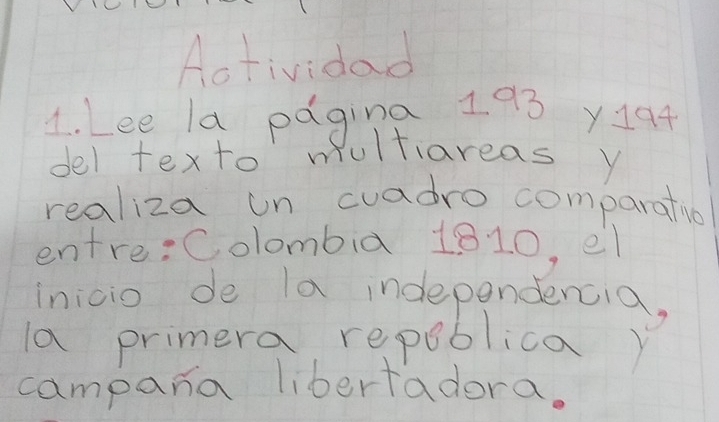 Actividad
1. Lee la página 193 y 194
del texto multiareas y
realiza un cuadro comparativo
entre: Colombia 1810, el
inicio de la independencia,
la primera republica y
campaña libertadora.